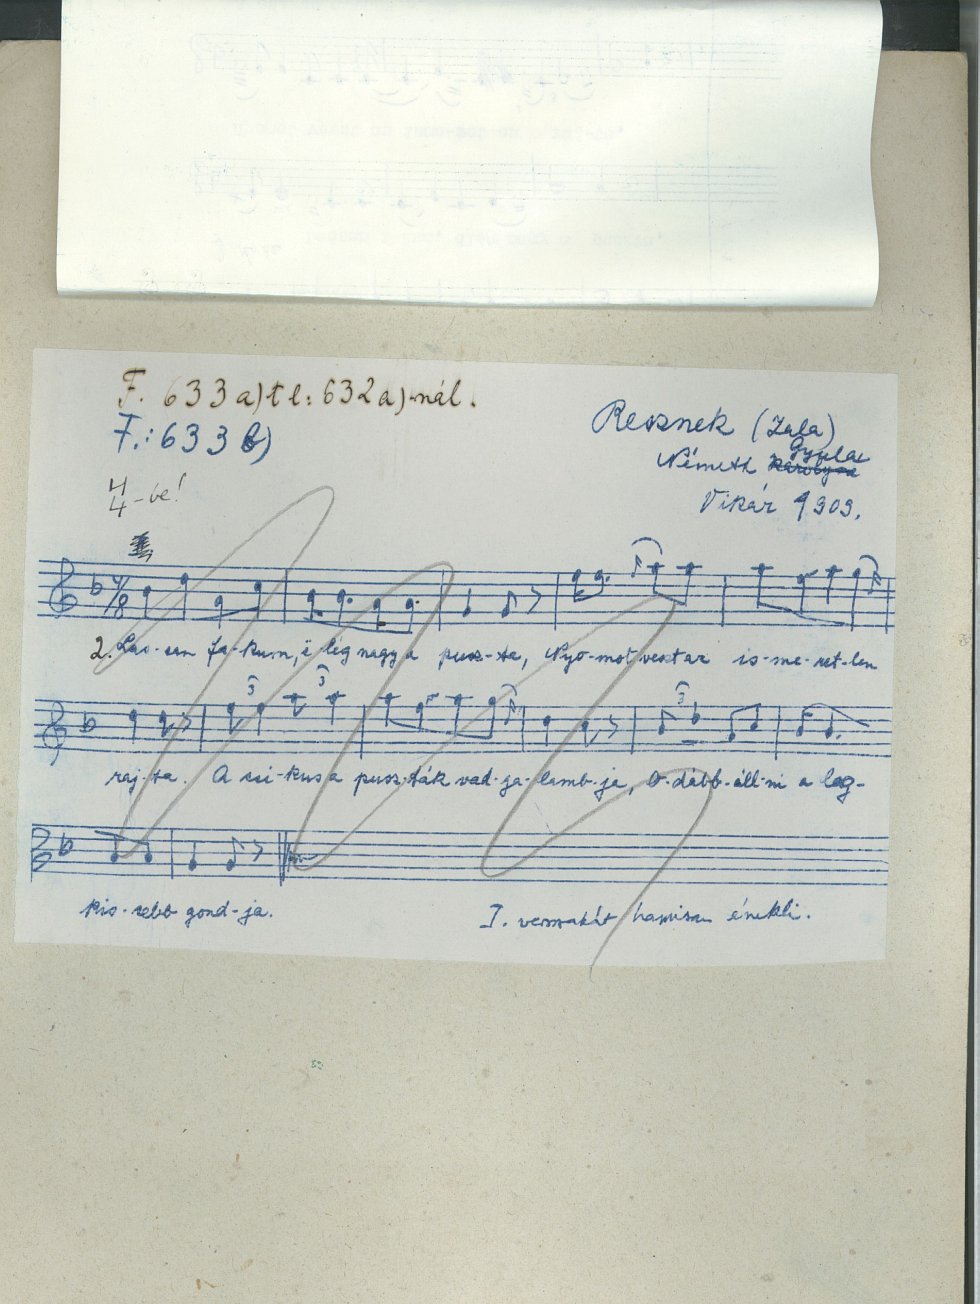 F. 633 a) tl: 632 a)-nál.
F.: 633 b)
4/4-be!
Resznek (Zala)
Németh Gyula
Vikár 1909.
4/8
2. Las-san fa-kum, ë lég nagy a pusz-ta, Nyo-mot veszt az is-me-ret-len
3 3 3
raj-ta. A csi-kus a pusz-ták vad-ga-lamb-ja, O-dább-áll-ni a leg-
kis-sebb gond-ja.
I. versszakát hamisan énekli.